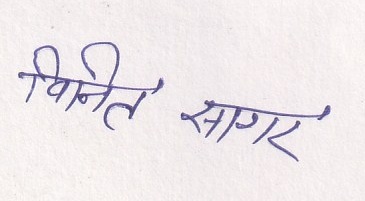 विनित सागर